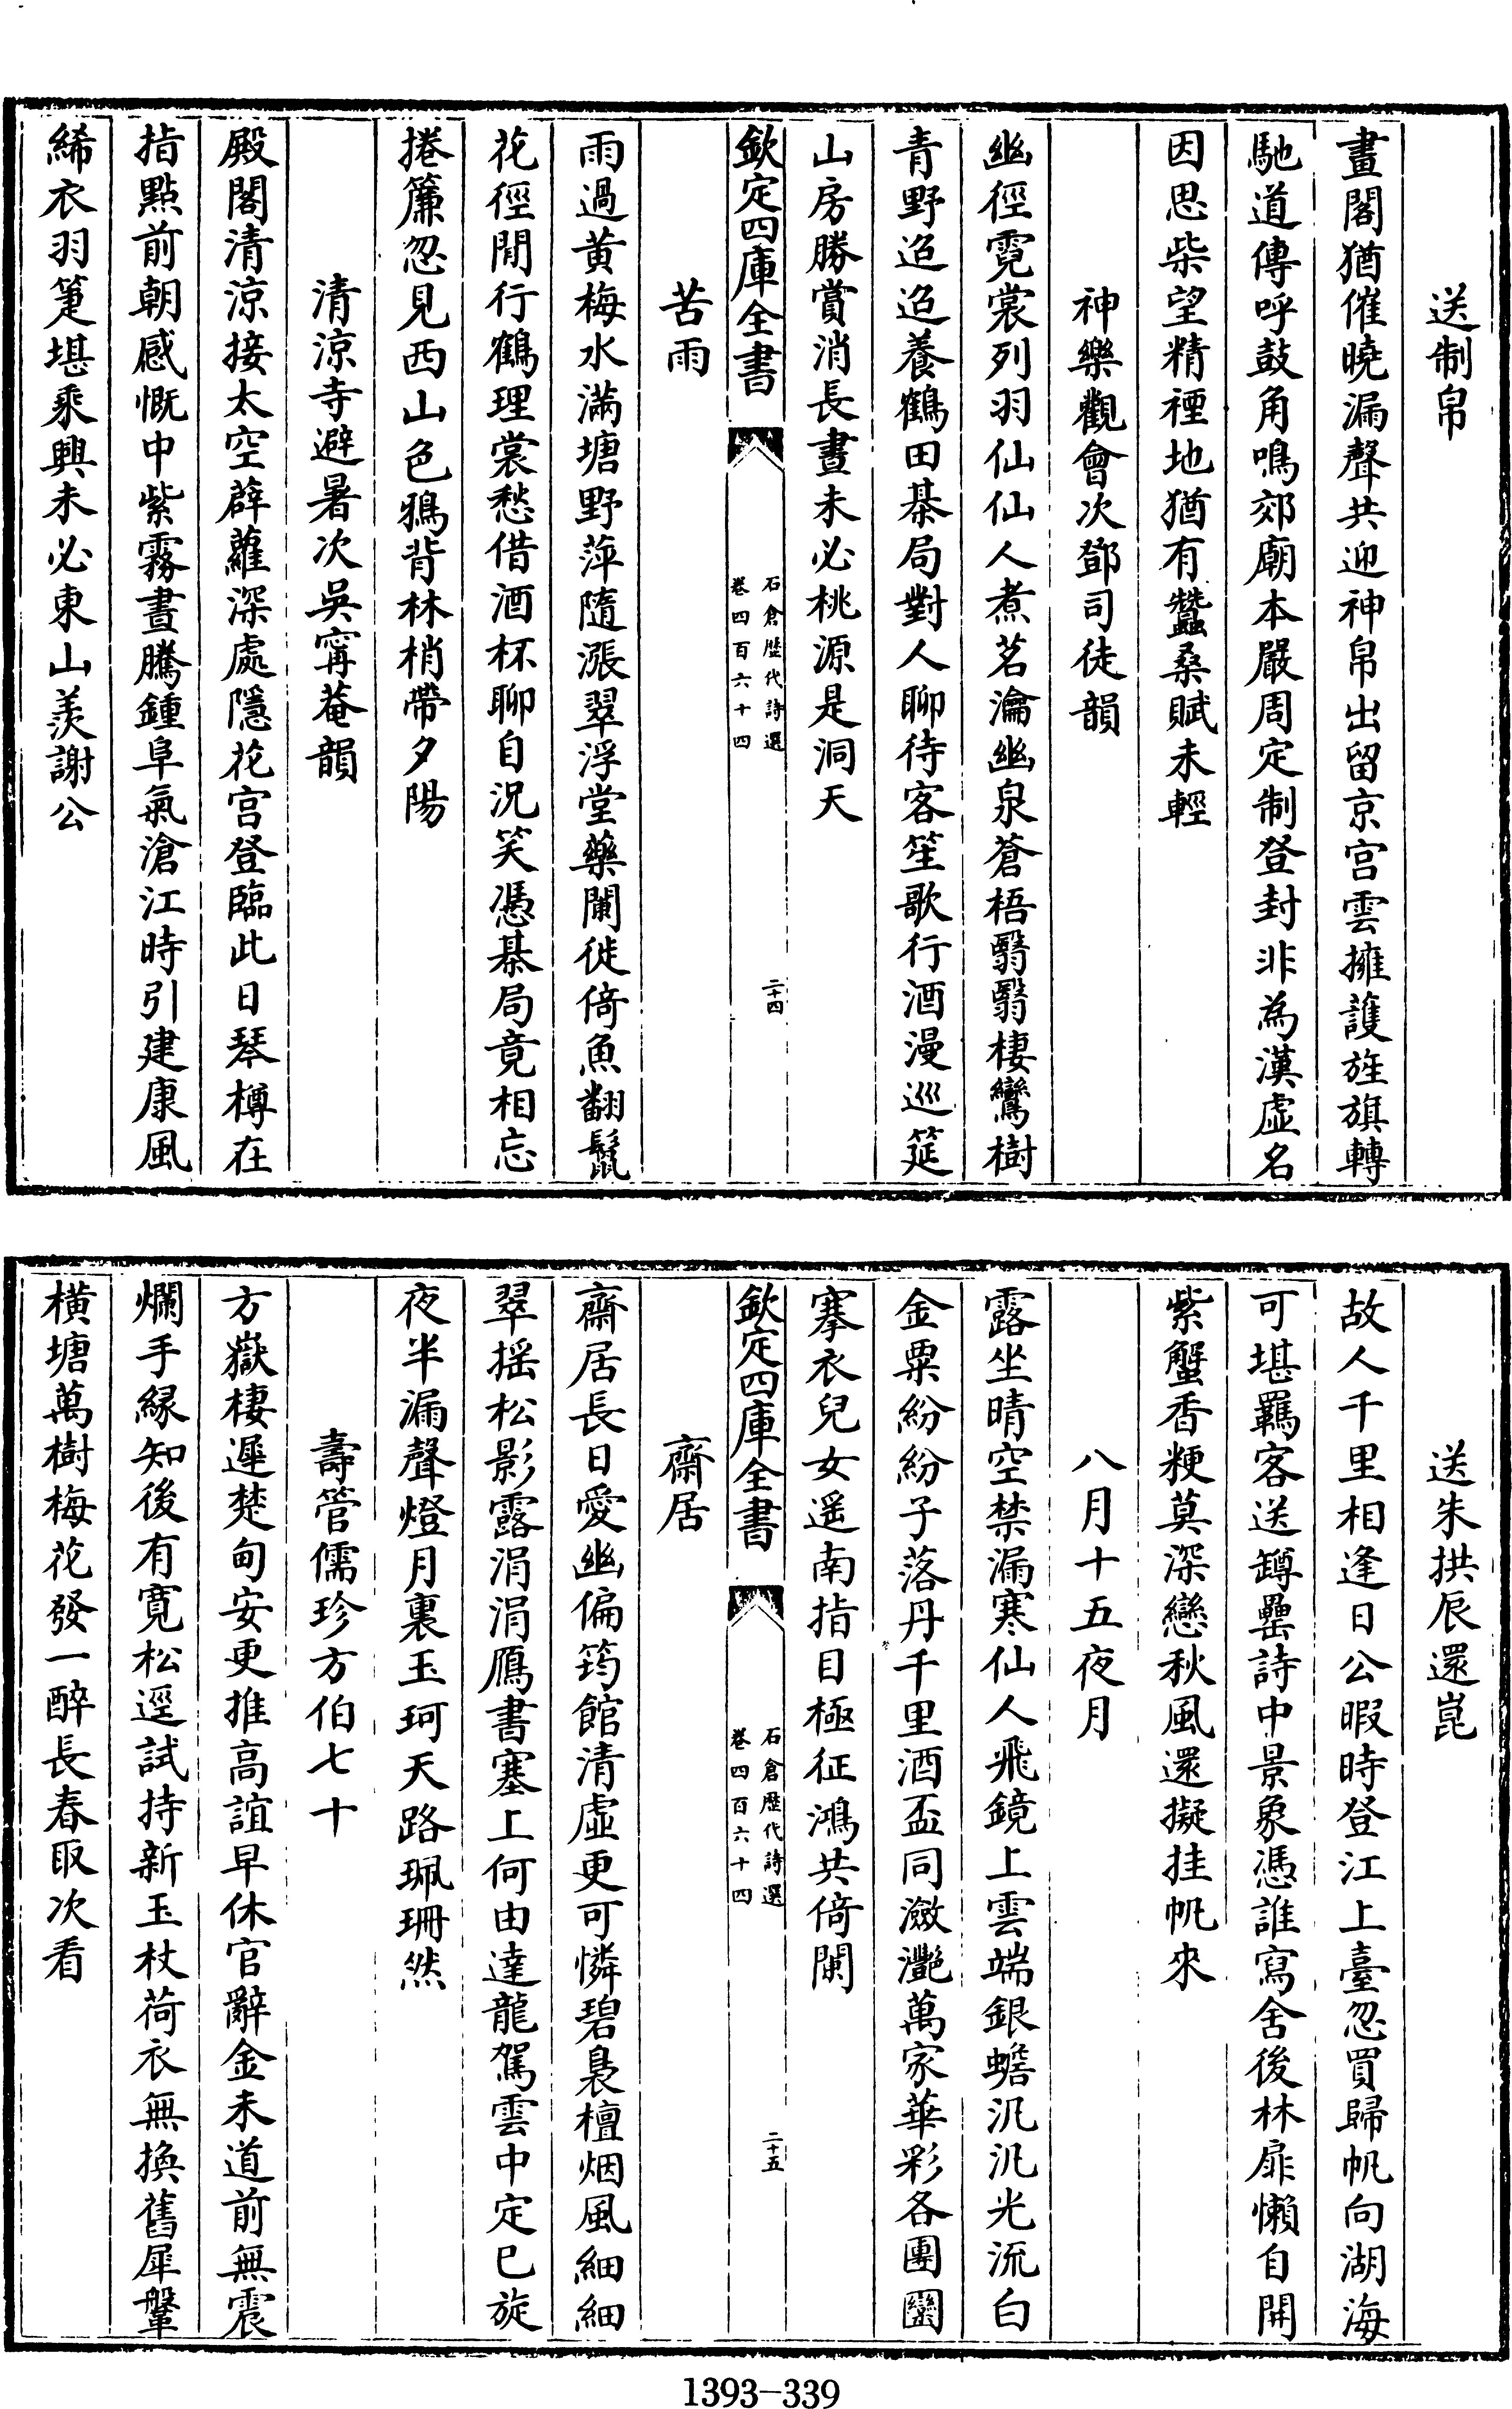 送制帛
畫閣猶催曉漏聲共迎神帛出留京宫雲擁護旌旗轉
馳道傳呼鼓角鳴郊廟本嚴周定制登封非為漢虛名
因思柴望精禋地猶有蠶桑賦未輕
神樂觀會次鄧司徒韻
幽徑霓裳列羽仙仙人煮茗瀹幽泉蒼梧翳翳棲鸞樹
青野迢迢養鶴田棊局對人聊待客笙歌行酒漫巡筵
山房勝賞消長晝未必桃源是洞天
欽定四庫全書
石倉歷代詩選
卷四百六十四
二十四
苦雨
雨過黄梅水滿塘野萍隨漲翠浮堂藥闌徙倚魚翻鬣
花徑閒行鶴理裳愁借酒杯聊自況笑憑棊局竟相忘
捲簾忽見西山色鴉背林梢帶夕陽
清涼寺避暑次吳甯菴韻
殿閣清涼接太空薜蘿深處隱花宫登臨此日琴樽在
指點前朝感慨中紫霧晝騰鍾阜氣滄江時引建康風
絺衣羽箑堪乘興未必東山羨謝公
送朱拱辰還崑
故人千里相逢日公暇時登江上臺忽買歸帆向湖海
可堪羈客送罇罍詩中景象憑誰寫舍後林扉懶自開
紫蟹香粳莫深戀秋風還擬挂帆來
八月十五夜月
露坐晴空禁漏寒仙人飛鏡上雲端銀蟾汎汎光流白
金粟紛紛子落丹千里酒盃同瀲灧萬家華彩各團圞
搴衣兒女遥南指目極征鴻共倚闌
欽定四庫全書
石倉歷代詩選
卷四百六十四
二十五
齋居
齋居長日愛幽偏筠館清虛更可憐碧裊檀烟風細細
翠揺松影露涓涓鴈書塞上何由達龍駕雲中定巳旋
夜半漏聲燈月裏玉珂天路珮珊然
壽管儒珍方伯七十
方嶽棲遲楚甸安更推高誼早休官辭金未道前無震
爛手縁知後有寛松逕試持新玉杖荷衣無換舊犀鞶
横塘萬樹梅花發一醉長春取次看
1393-339